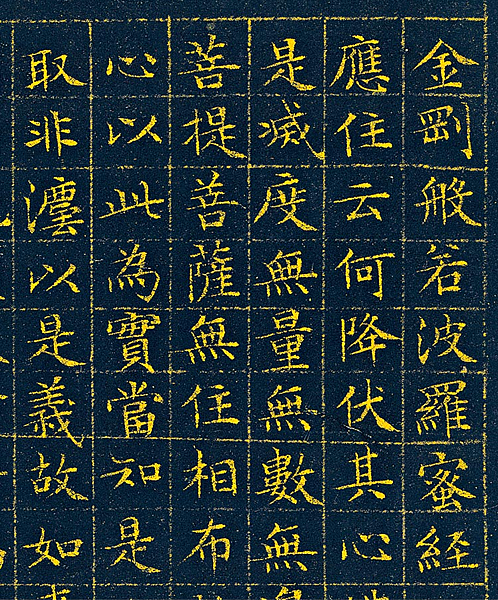 金剛般若波羅蜜經
應住云何降伏其心
是滅度無量無數無
菩提菩薩無住相布
心以此為實當知是
取非灋以是義故如